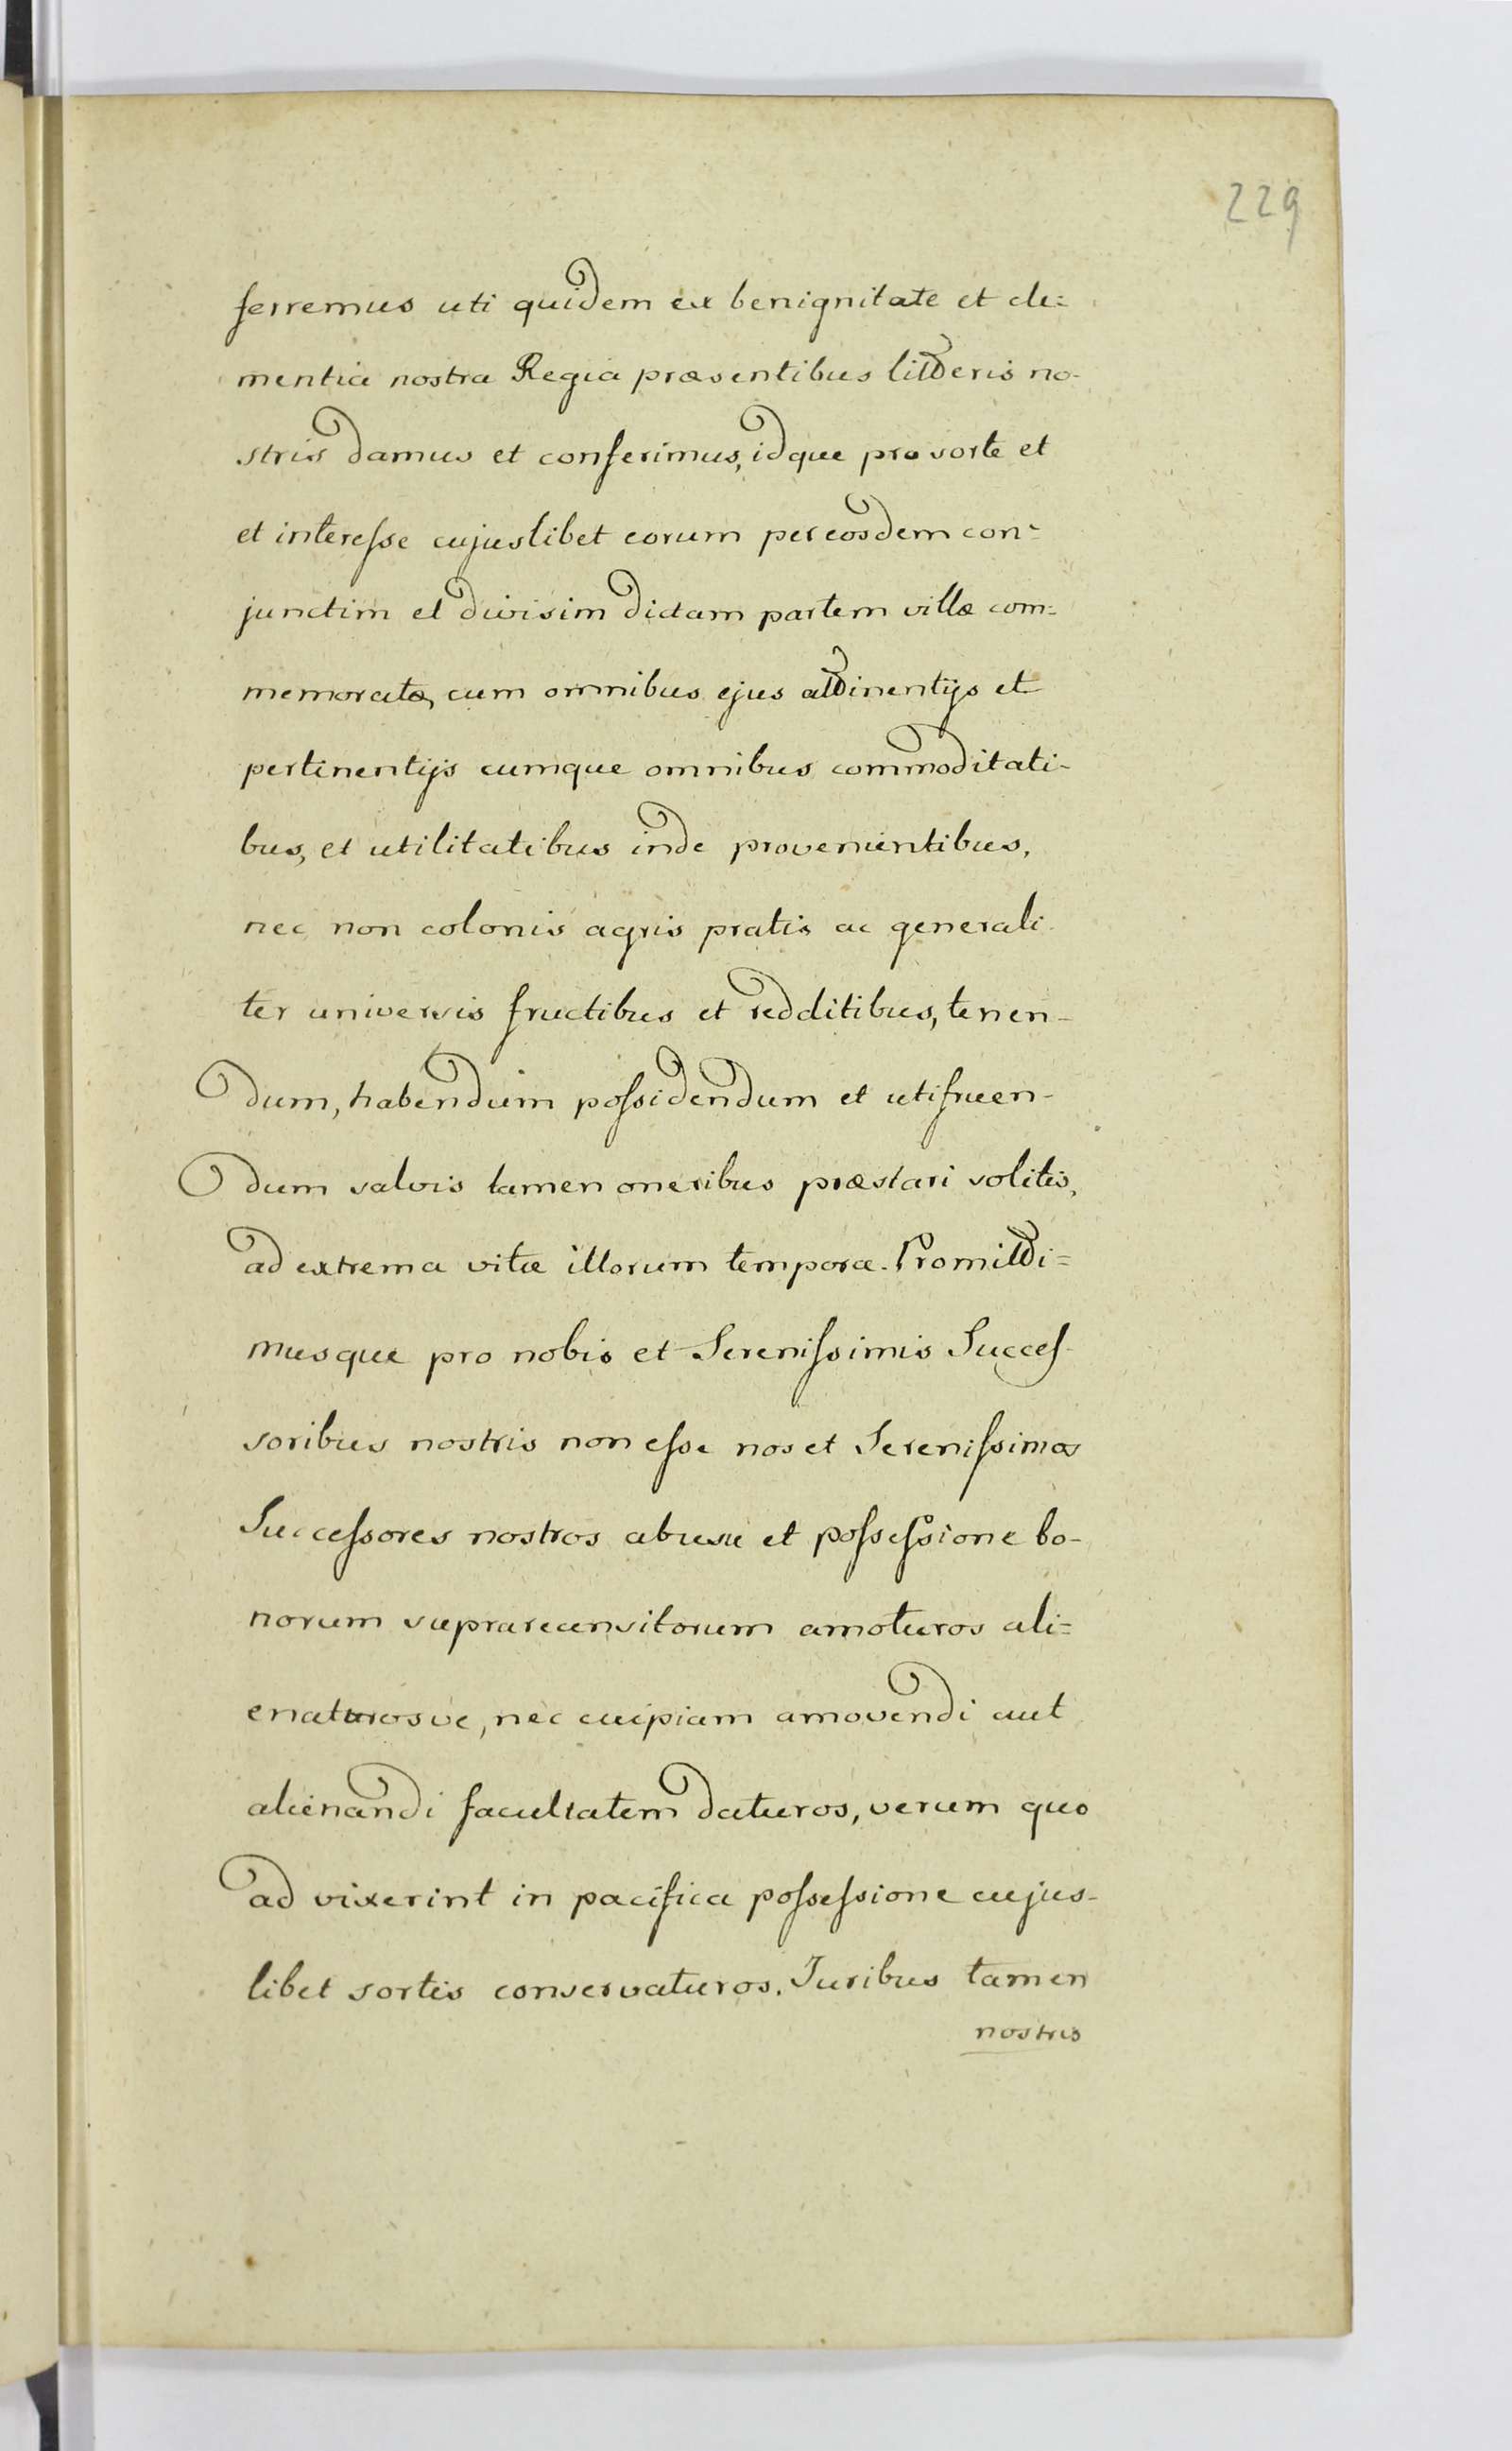 229
ferremus uti quidem ex benignitate et cle=
mentia nostra Regia præsentibus litteris no-
stris damus et conferimus, idque pro sorte et
et interesse cujuslibet eorum per eosdem con=
junctim et divisim dictam partem villæ com=
memoratæ, cum omnibus ejus attinentijs et
pertinentijs cumque omnibus commoditati-
bus, et utilitatibus inde provenientibus,
nec non colonis agris pratis ac generali
ter universis fructibus et redditibus, tenen-
dum, habendum possidendum et utifruen-
dum salvis tamen oneribus præstari solitis,
ad extrema vitæ illorum tempora. Promitti=
musque pro nobis et Serenissimis Succes-
soribus nostris non esse nos et Serenissimos
Successores nostros abusu et possessione bo-
norum suprarecensitorum amoturos ali=
enaturosve, nec cuipiam amovendi aut
alienandi facultatem daturos, verum quo
ad vixerint in pacifica possessione cujus-
libet sortis conservaturos. Juribus tamen
nostris